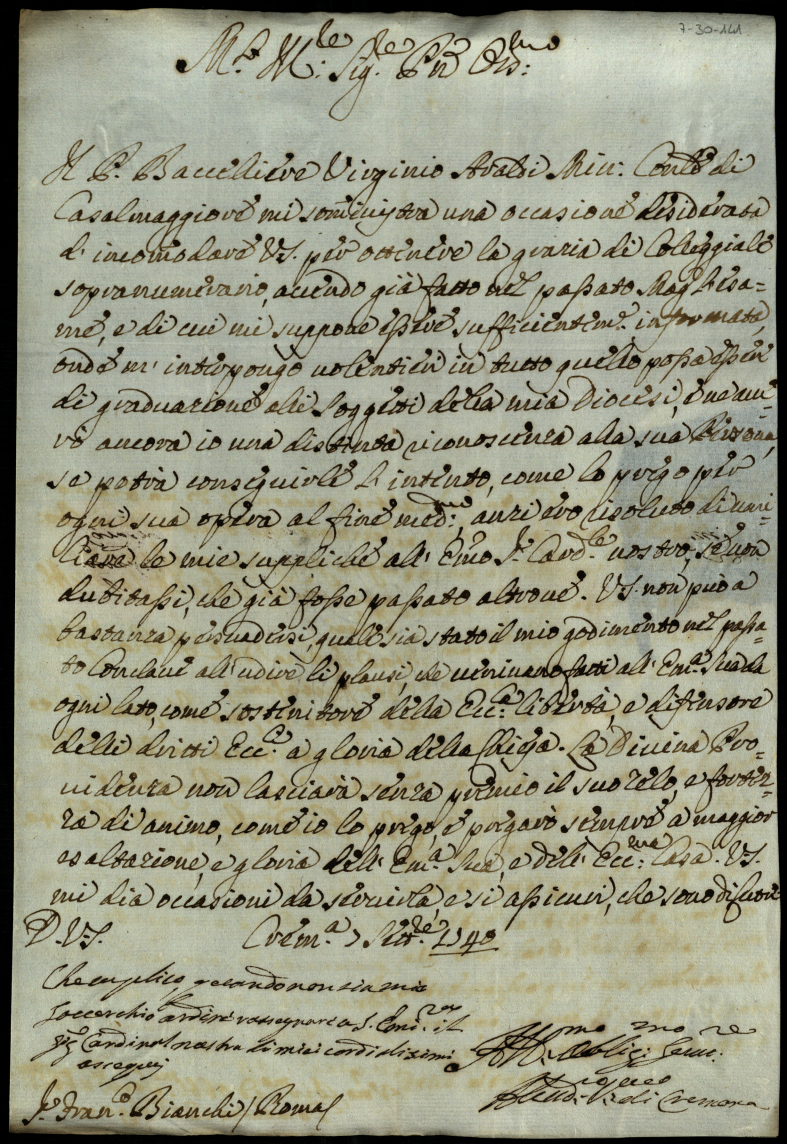 7-30-141
M.to Ill.re Sig.re P.ne Oss.mo
Il P. Baccelliere Virginio Araldi Min: Conv.le di
Casalmaggiore mi somministra una occasione desiderata
d'incomodare V.S. per ottenere la grazia di Colleggiale
sopranumerario, avendo già fatto nel passato Mag. l'esa=
me, e di cui mi suppone essere sufficientem.e informata,
onde m'interpongo volentieri in tutto quello possa esser
di graduazione alli Soggetti della mia Diocesi, e ne au=
rò ancora io una distinta riconoscenza alla sua Persona,
se potrà conseguirle l'intento, come lo prego per
ogni sua opera al fine med.mo, anzi ero risoluto di umi=
liare le mie suppliche all'Emo S.r Card.le nostro, se non
dubitassi, che già fosse passato altrove. V.S. non può a
bastanza persuadersi, quale sia stato il mio godimento nel passa=
to Conclave all'udire li plausi, che venivano fatti all'Em.a Sua da
ogni lato, come sostenitore della Ecc.ca libertà, e difensore
delli dritti Ecc.ci a gloria della Chiesa. La Divina Pro=
videnza non lasciarà senza premio il suo zelo, e fortez=
za di animo, come io lo prego, e pregarò sempre a maggior
esaltazione, e gloria dell'Em.a Sua, e dell'Ecc.ma Casa. V.S.
mi dia occasioni da servirla, e si assicuri, che sono di cuore
D.V.S. Crem.a 7 Sett.re 1740
Che supplico, quando non sia mio
soverchio ardire rassegnare a S. Emi.za il
Sig. Cardinal nostro li miei cordialissimi
ossequij
Aff.mo Oblig.mo Ser.re
Aless. Vesc.o di Cremona
S.r Fran.co Bianchi / Roma